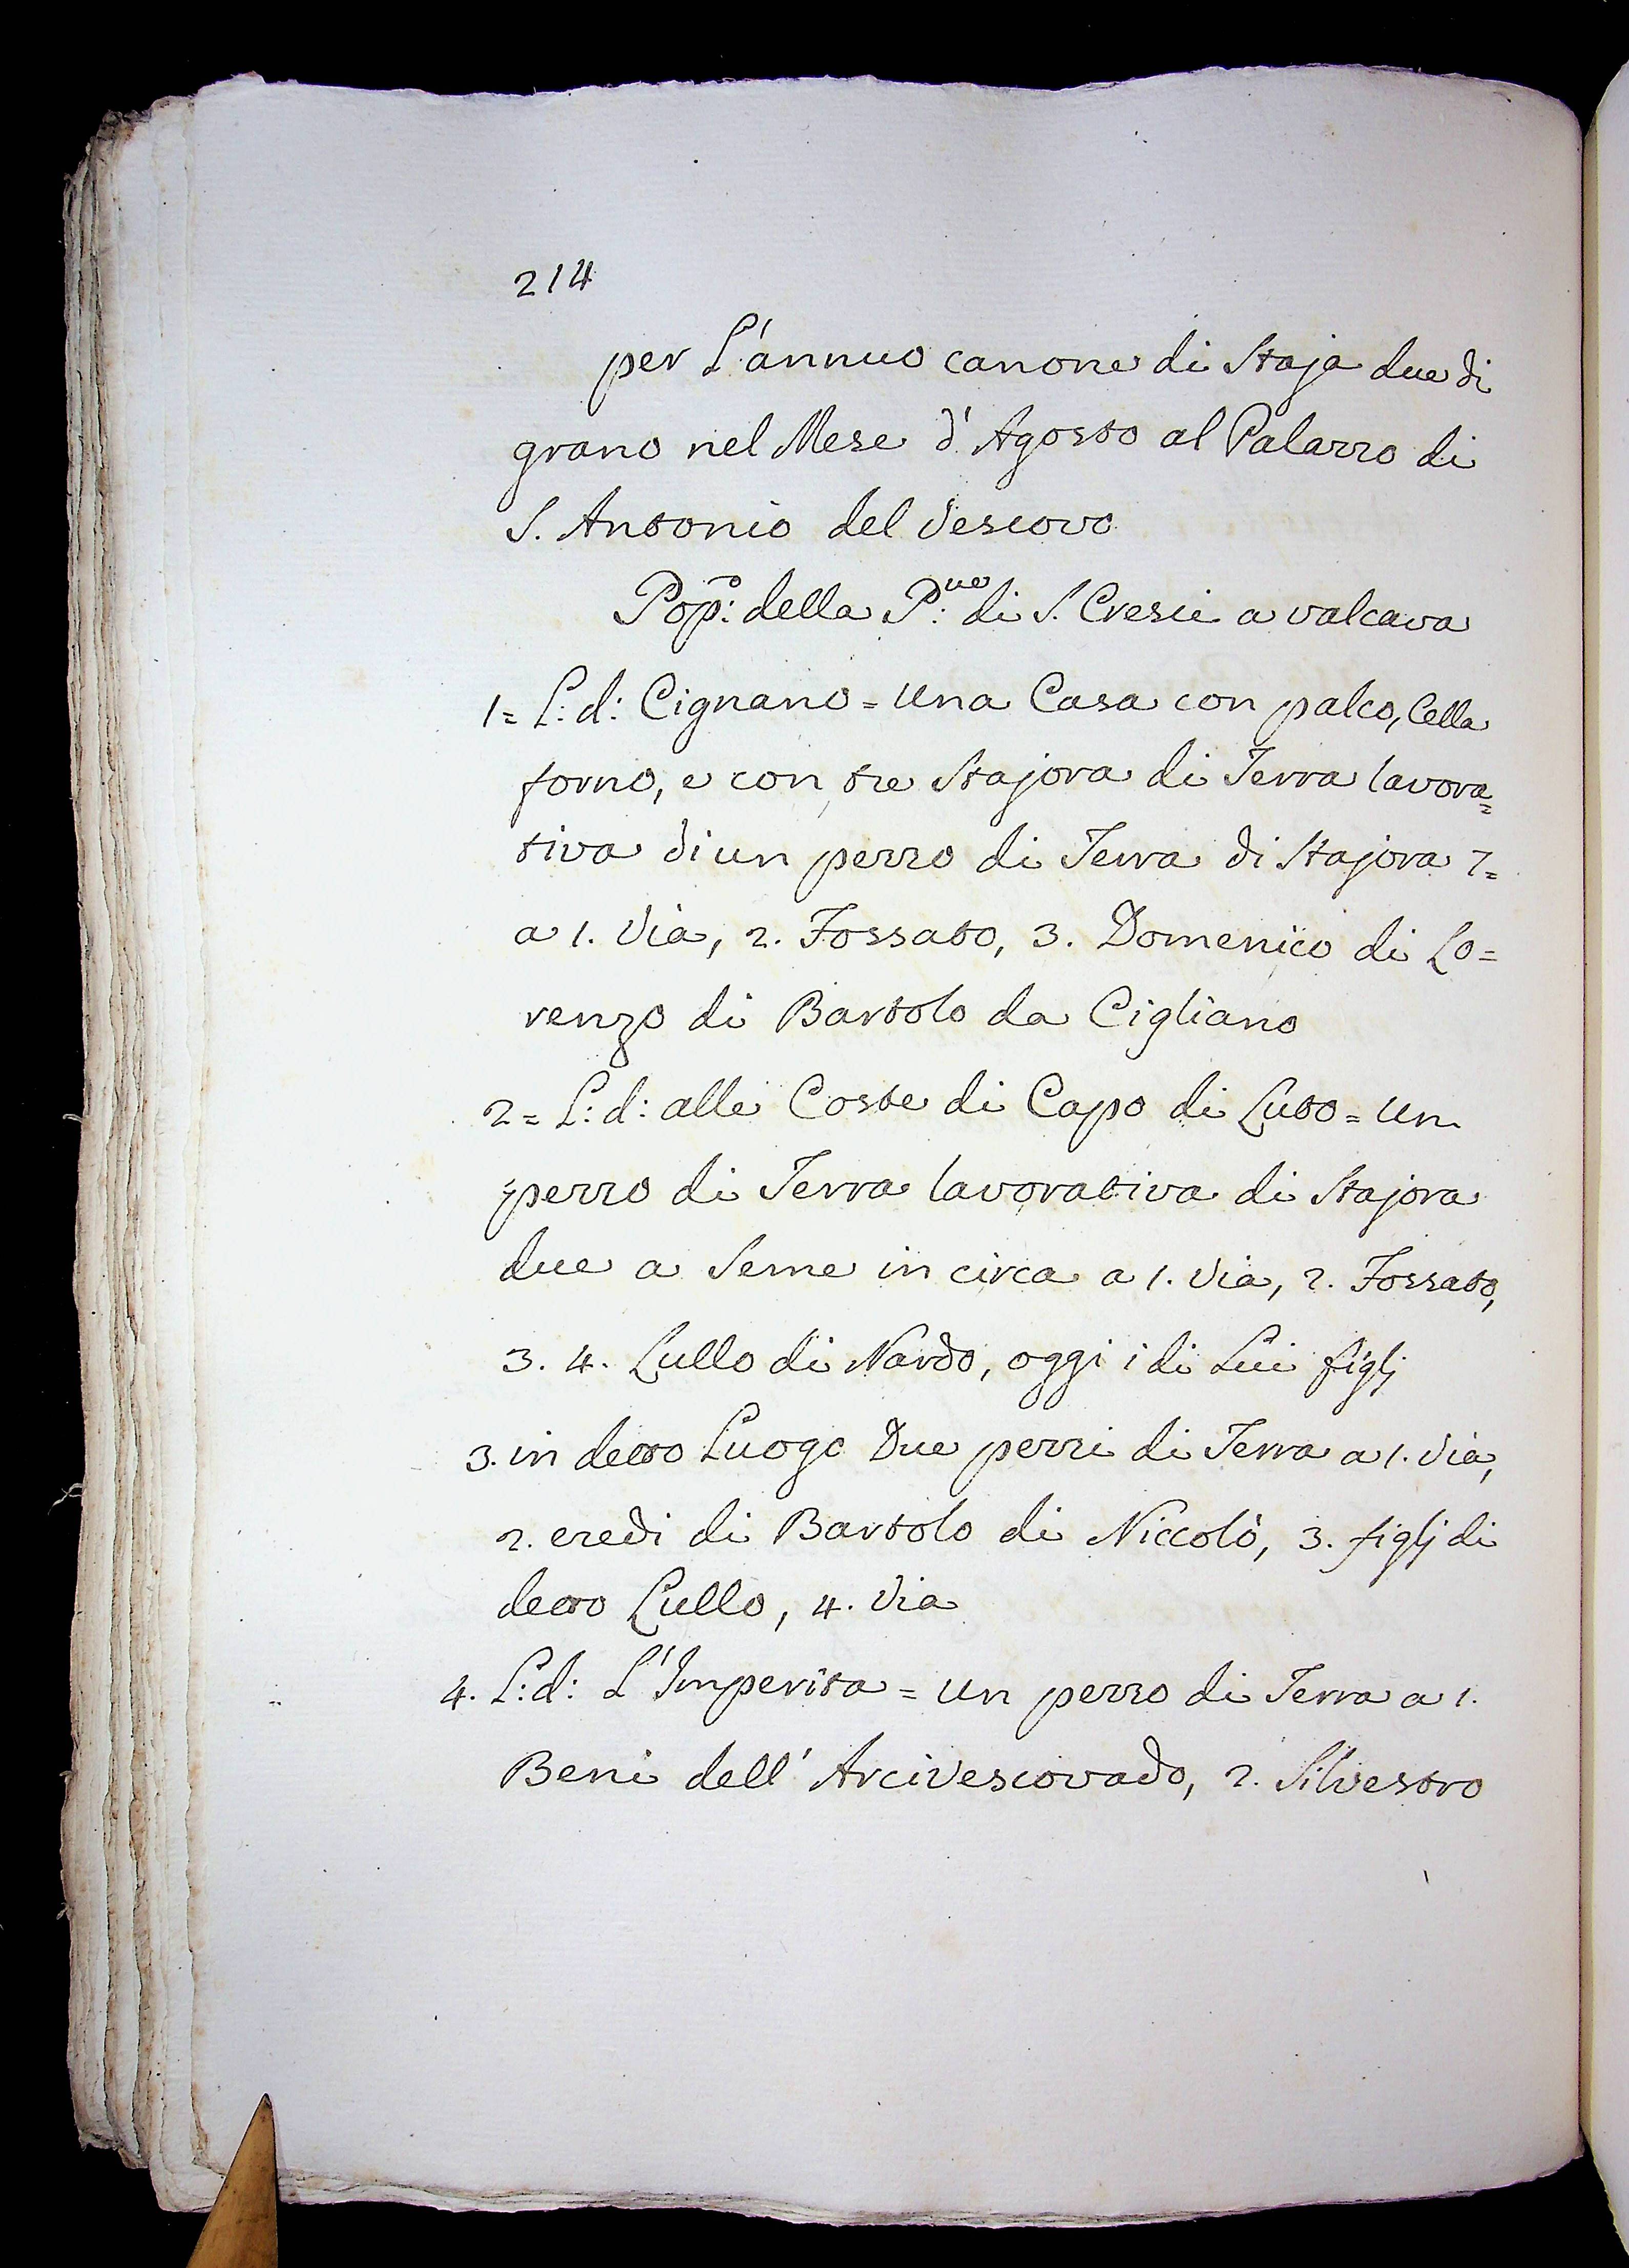 214
per L'annuo canone di Staja due di
grano nel Mese d'Agosto al Palazzo di
S. Antonio del Vescovo
Pop:º della P:ue di S. Cresci a valcava
1= L: d: Cignano = una Casa con palco, Cella
forno, e con tre Stajora di Terra lavora=
tiva di un pezzo di Terra di Stajora 7=
a 1. Via, 2. Fossato, 3. Domenico di Lo=
renzo di Bartolo da Cigliano
2= L: d: alle Coste di Capo di Luto = un
pezzo di Terra lavorativa di Stajora
due a Seme in circa a 1. Via, 2. Fossato,
3. 4. Lullo di Nardo, oggi i di Lui figlj
3. in detto Luogo Due pezzi di Terra a 1. Via,
2. eredi di Bartolo di Niccolò, 3. figlj di
detto Lullo, 4. Via
4. L: d: L'Imperita = un pezzo di Terra a 1.
Beni dell'Arcivescovado, 2. Silvestro